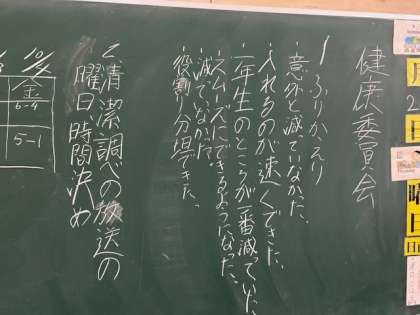 健康委員会
1 ふりかえり
・意外と減っていなかった。
・入れるのが速くできた。
・一年生のところが一番減っていた。
・スムーズにできるようになった。
・減っていなかった
・役割り分担できた。
2、清潔調べの放送の
曜日、時間決め
金
6-4
5-1
月
2
日
曜
日